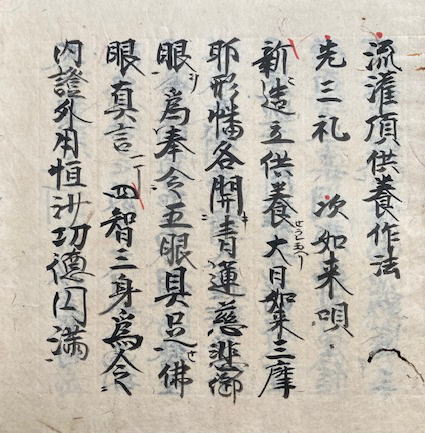 流灌頂供養作法
先三礼 次如来唄
新造立供養大日如来三摩
耶形幡各開青蓮慈悲御
眼為奉令五眼具足佛
眼真言 四智三身為令
内證外用恒沙功德円満